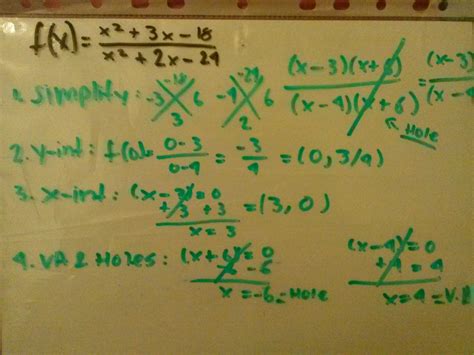 f(x) = x² + 3x - 18 / x² + 2x - 24
1. Simplify: -3 -18 6 3 -4 -24 6 2 (x-3)(x+6) / (x-4)(x+6) = (x-3) / (x-4
Hole
2. y-int: f(0)= 0-3 / 0-4 = -3 / -4 = (0, 3/4)
3. x-int: (x-3)=0
+3 +3 = (3, 0)
x = 3
4. VA & Holes: (x+6)=0 (x-4)=0
-6 -6 +4 = 4
x = -6 = Hole x = 4 = V.A